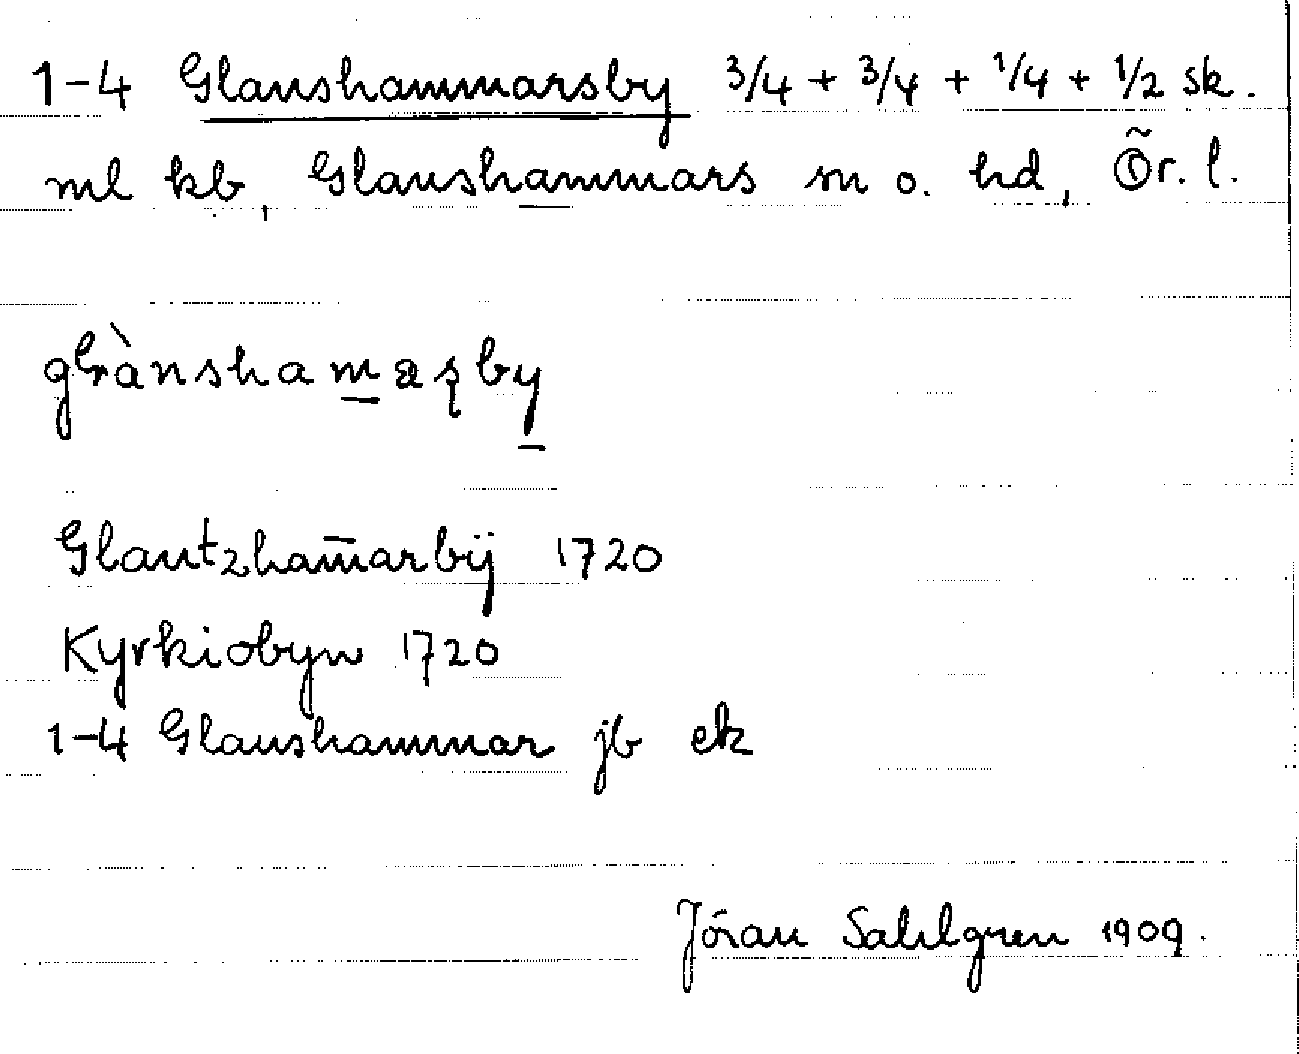 1-4 Glanshammarsby 3/4 + 3/4 + 1/4 + 1/2 sk.
ml kb, Glanshammars sn o. hd, Ör. l.
glànshamaʂby
Glantzham̄arbÿ 1720
Kyrkiobyn 1720
1-4 Glanshammar jb ek
Jöran Sahlgren 1909.